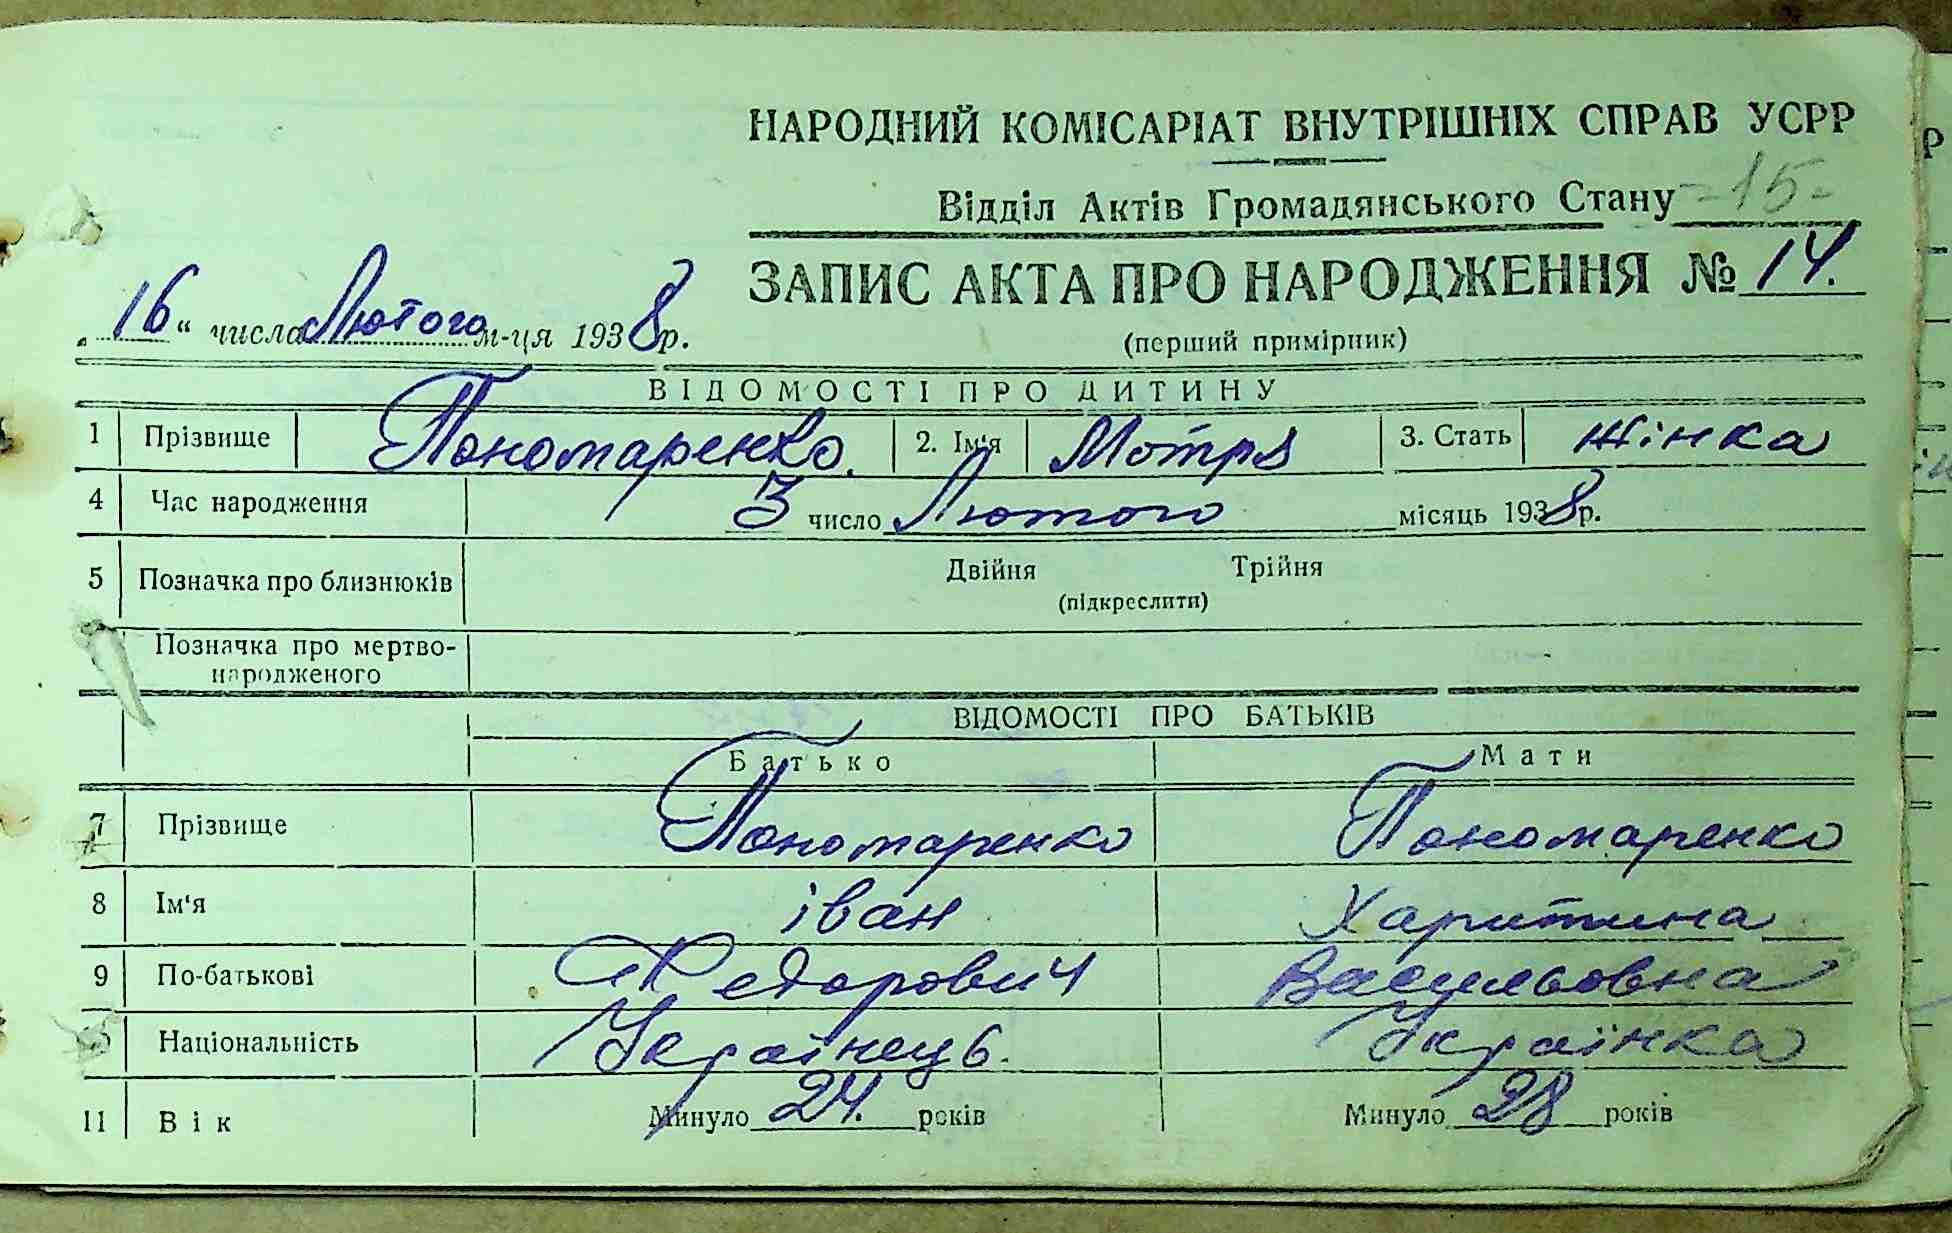 НАРОДНИЙ КОМІСАРІАТ ВНУТРІШНІХ СПРАВ УСРР
Відділ Актів Громадянського Стану -15-
ЗАПИС АКТА ПРО НАРОДЖЕННЯ № 14.
„16“ числа Лютого м-ця 1938 р.
(перший примірник)
ВІДОМОСТІ ПРО ДИТИНУ
1 Прізвище Пономаренко. 2. Ім'я Мотря 3. Стать жінка
4 Час народження 3 число Лютого місяць 1938 р.
5 Позначка про близнюків Двійня Трійня
(підкреслити)
Позначка про мертво-
народженого
ВІДОМОСТІ ПРО БАТЬКІВ
Батько Мати
7 Прізвище Пономаренко Пономаренко
8 Ім'я іван Харитина
9 По-батькові Федорович Васильовна
Національність Українець. Українка
11 Вік Минуло 24. років Минуло 28 років